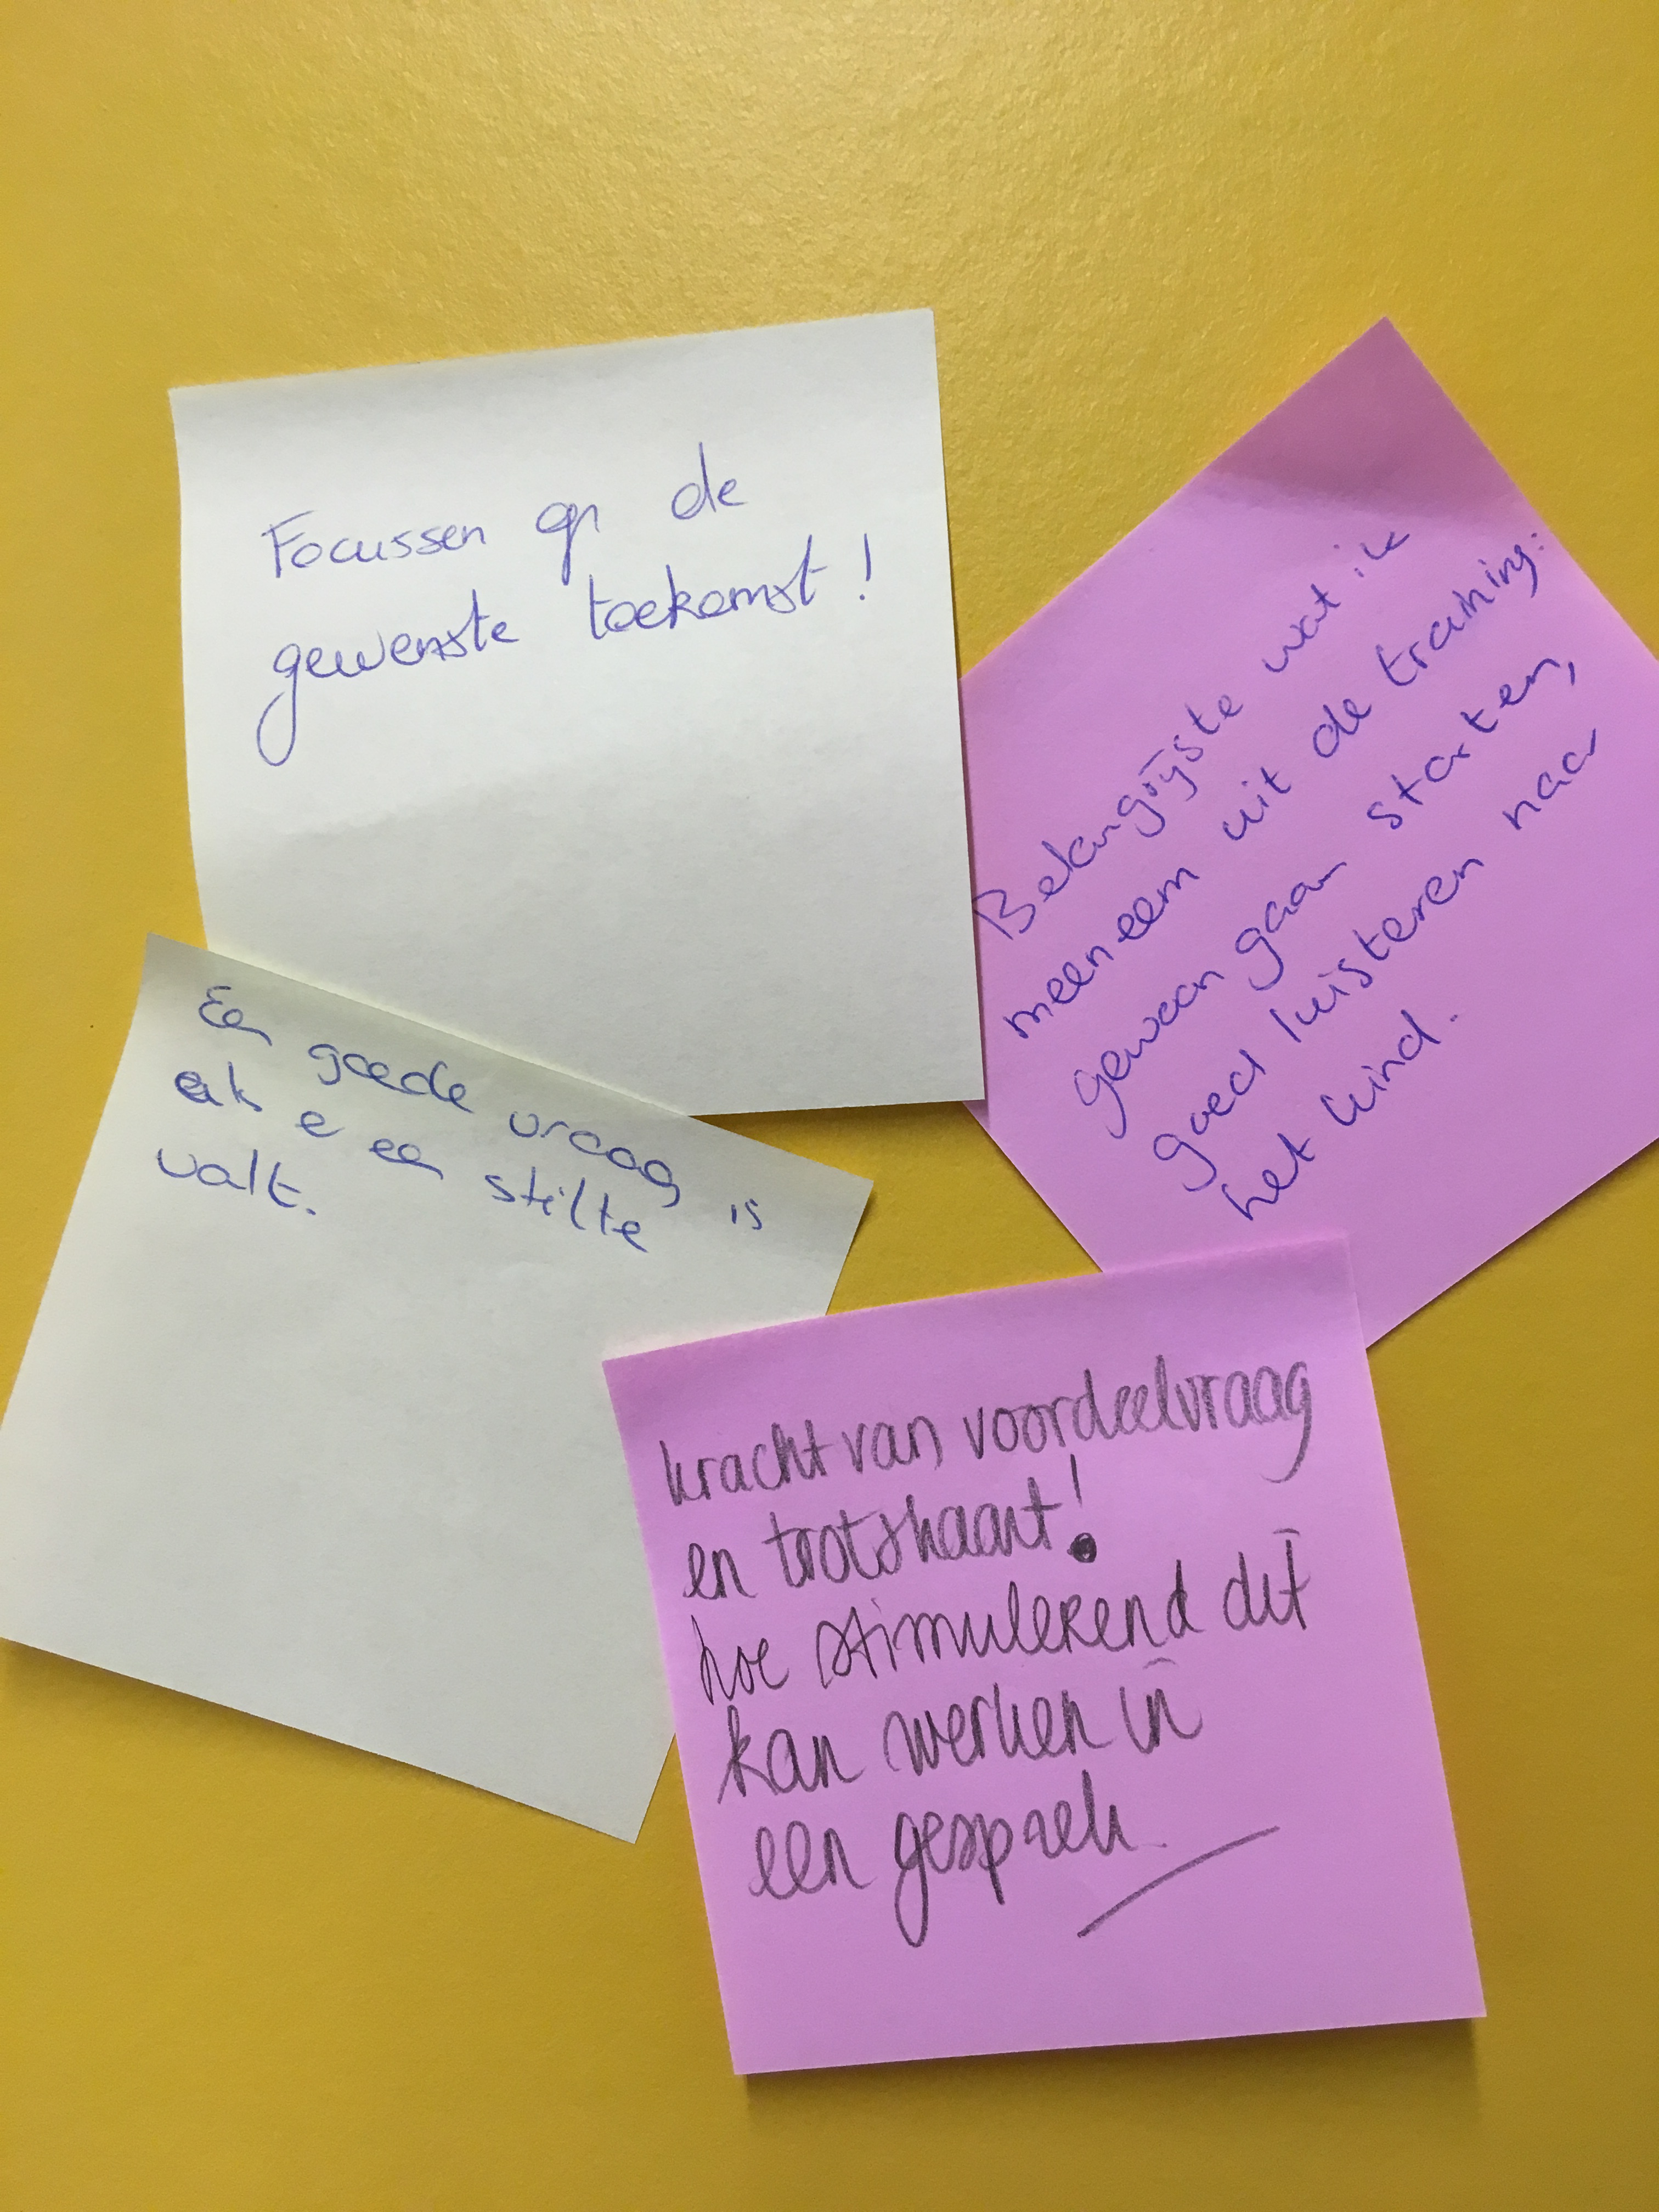 Focussen op de
gewenste toekomst!
Belangrijste wat ik
meeneem uit de training:
gewoon gaan starten,
goed luisteren naar
het kind.
Een goede vraag is
als er een stilte
valt.
kracht van voordeelvraag
en trotskaart!
hoe stimulerend dit
kan werken in
een gesprek